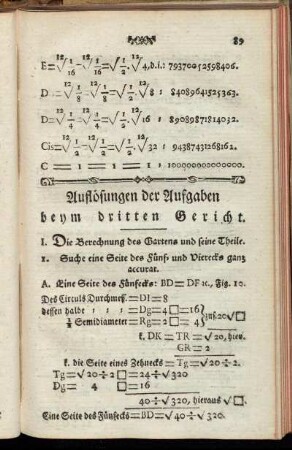 89
E=¹²√1/16=¹²√1/16=√1/2.¹²√4, d.i.: 793700525984o6.
D=¹²√1/8=¹²√1/8=√1/2.¹²√8: 84089641525363.
D=¹²√1/4=¹²√1/4=√1/2.¹²√16: 89089871814032.
Cis=¹²√1/2=¹²√1/2=√1/2.¹²√32: 94387431268162.
C = 1 = 1 = 1: 100000000000000.
Auflösungen der Aufgaben
beym dritten Gericht.
I. Die Berechnung des Gartens und seine Theile.
1. Suche eine Seite des Fünf- und Vierecks ganz
accurat.
A. Eine Seite des Fünfecks: BD=DF ꝛc., Fig. 10.
Des Circuls Durchmeß.=DI=8
dessen halbe =Dg=4□=16
½ Semidiameter=Rg=2□=4
zuſ. 20√□
f. DK = TR = √20, hier.
GR = 2
f. die Seite eines Zehnecks = Tg = √20÷2.
Tg = √20÷2 □ = 24÷√320
Dg = 4 □ = 16
40÷√320, hieraus √□.
Eine Seite des Fünfecks=BD=√40÷√320.